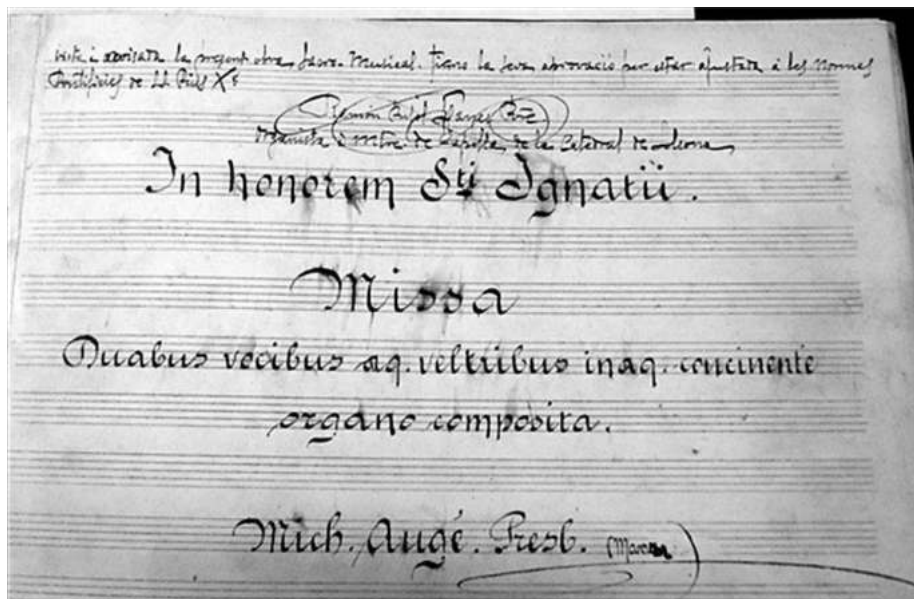 vista i revisada la present obra Sacro-Musical. Tiene la seva aprovació per estar ajustada a les Normes
Pontificies de Pius X
Organista i mestre de Capilla de la Catedral de
In honorem Sti Ignatii.
Missa
Duabus vocibus aq. vel tribus inaq. concinente
organo composita.
Mich. Augé. Presb.